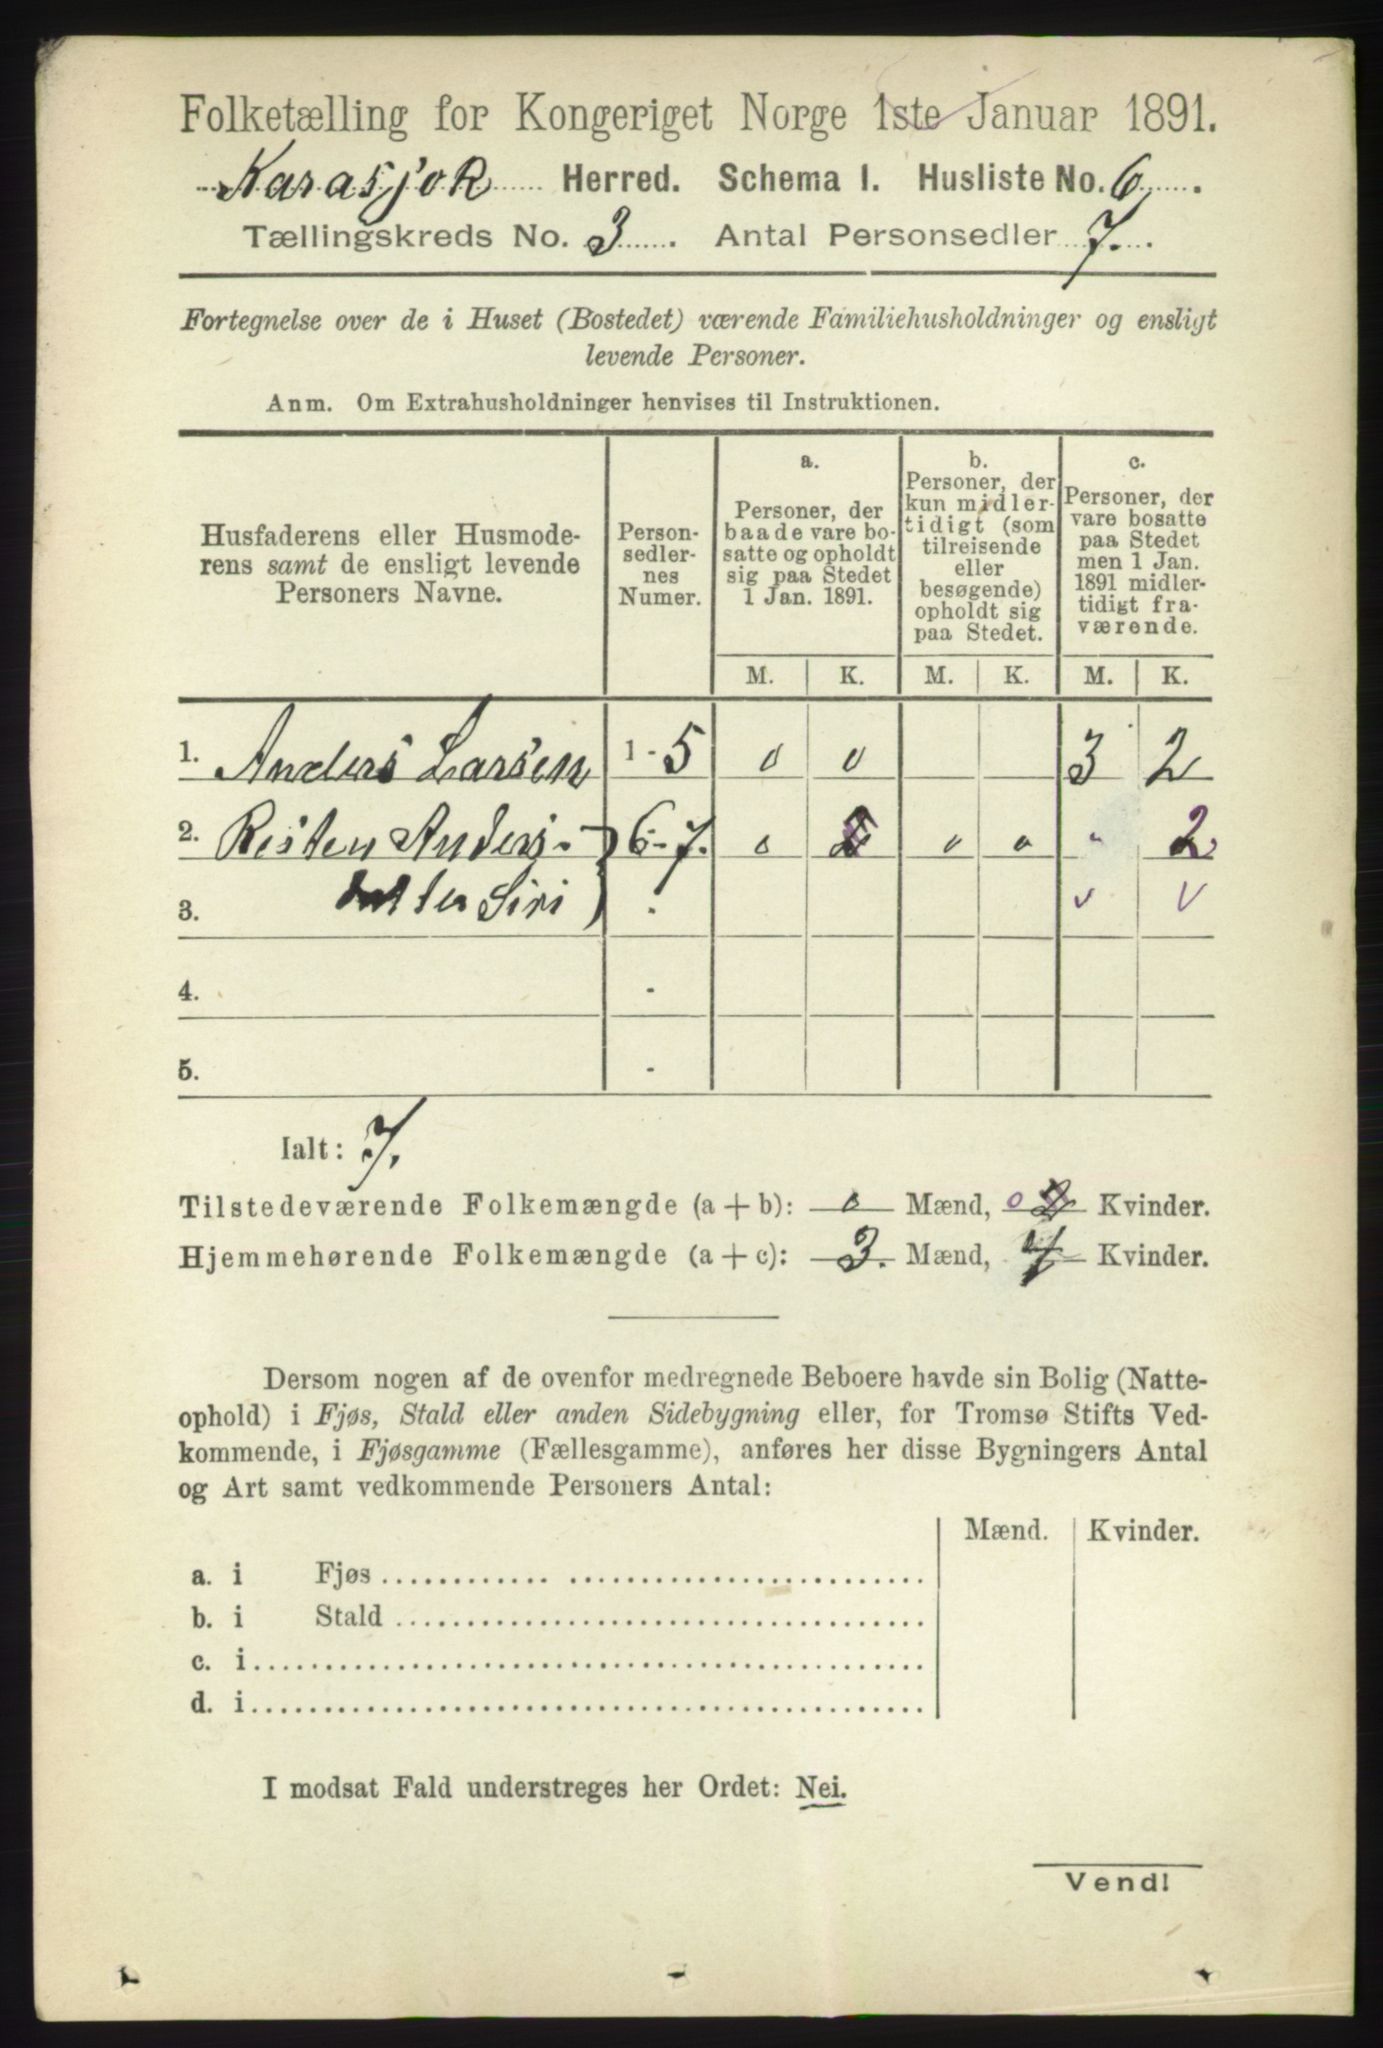 Folketælling for Kongeriget Norge 1ste Januar 1891.
Karasjok Herred. Schema I. Husliste No. 6.
Tællingskreds No. 3. Antal Personsedler 7.
Fortegnelse over de i Huset (Bostedet) værende Familiehusholdninger og ensligt
levende Personer.
Anm. Om Extrahusholdninger henvises til Instruktionen.
Husfaderens eller Husmode-
rens samt de ensligt levende
Personers Navne.
Person-
sedler-
nes
Numer.
a.
Personer, der
baade vare bo-
satte og opholdt
sig paa Stedet
1 Jan. 1891.
b.
Personer, der
kun midler-
tidigt (som
tilreisende
eller
besøgende)
opholdt sig
paa Stedet.
c.
Personer, der
vare bosatte
paa Stedet
men 1 Jan.
1891 midler-
tidigt fra-
værende.
M. K. M. K. M. K.
1. Anders Larsen 1 - 5 0 0 3 2
2. Risten Anders- 6 - 7. 0 2 0 0 " 2
3. datter Siri - v v
4. -
5. -
Ialt: 7.
Tilstedeværende Folkemængde (a + b): 0 Mænd, 0 2 Kvinder.
Hjemmehørende Folkemængde (a + c): 3. Mænd, 4 Kvinder.
Dersom nogen af de ovenfor medregnede Beboere havde sin Bolig (Natte-
ophold) i Fjøs, Stald eller anden Sidebygning eller, for Tromsø Stifts Ved-
kommende, i Fjøsgamme (Fællesgamme), anføres her disse Bygningers Antal
og Art samt vedkommende Personers Antal:
Mænd. Kvinder.
a. i Fjøs
b. i Stald
c. i
d. i
I modsat Fald understreges her Ordet: Nei.
Vend!